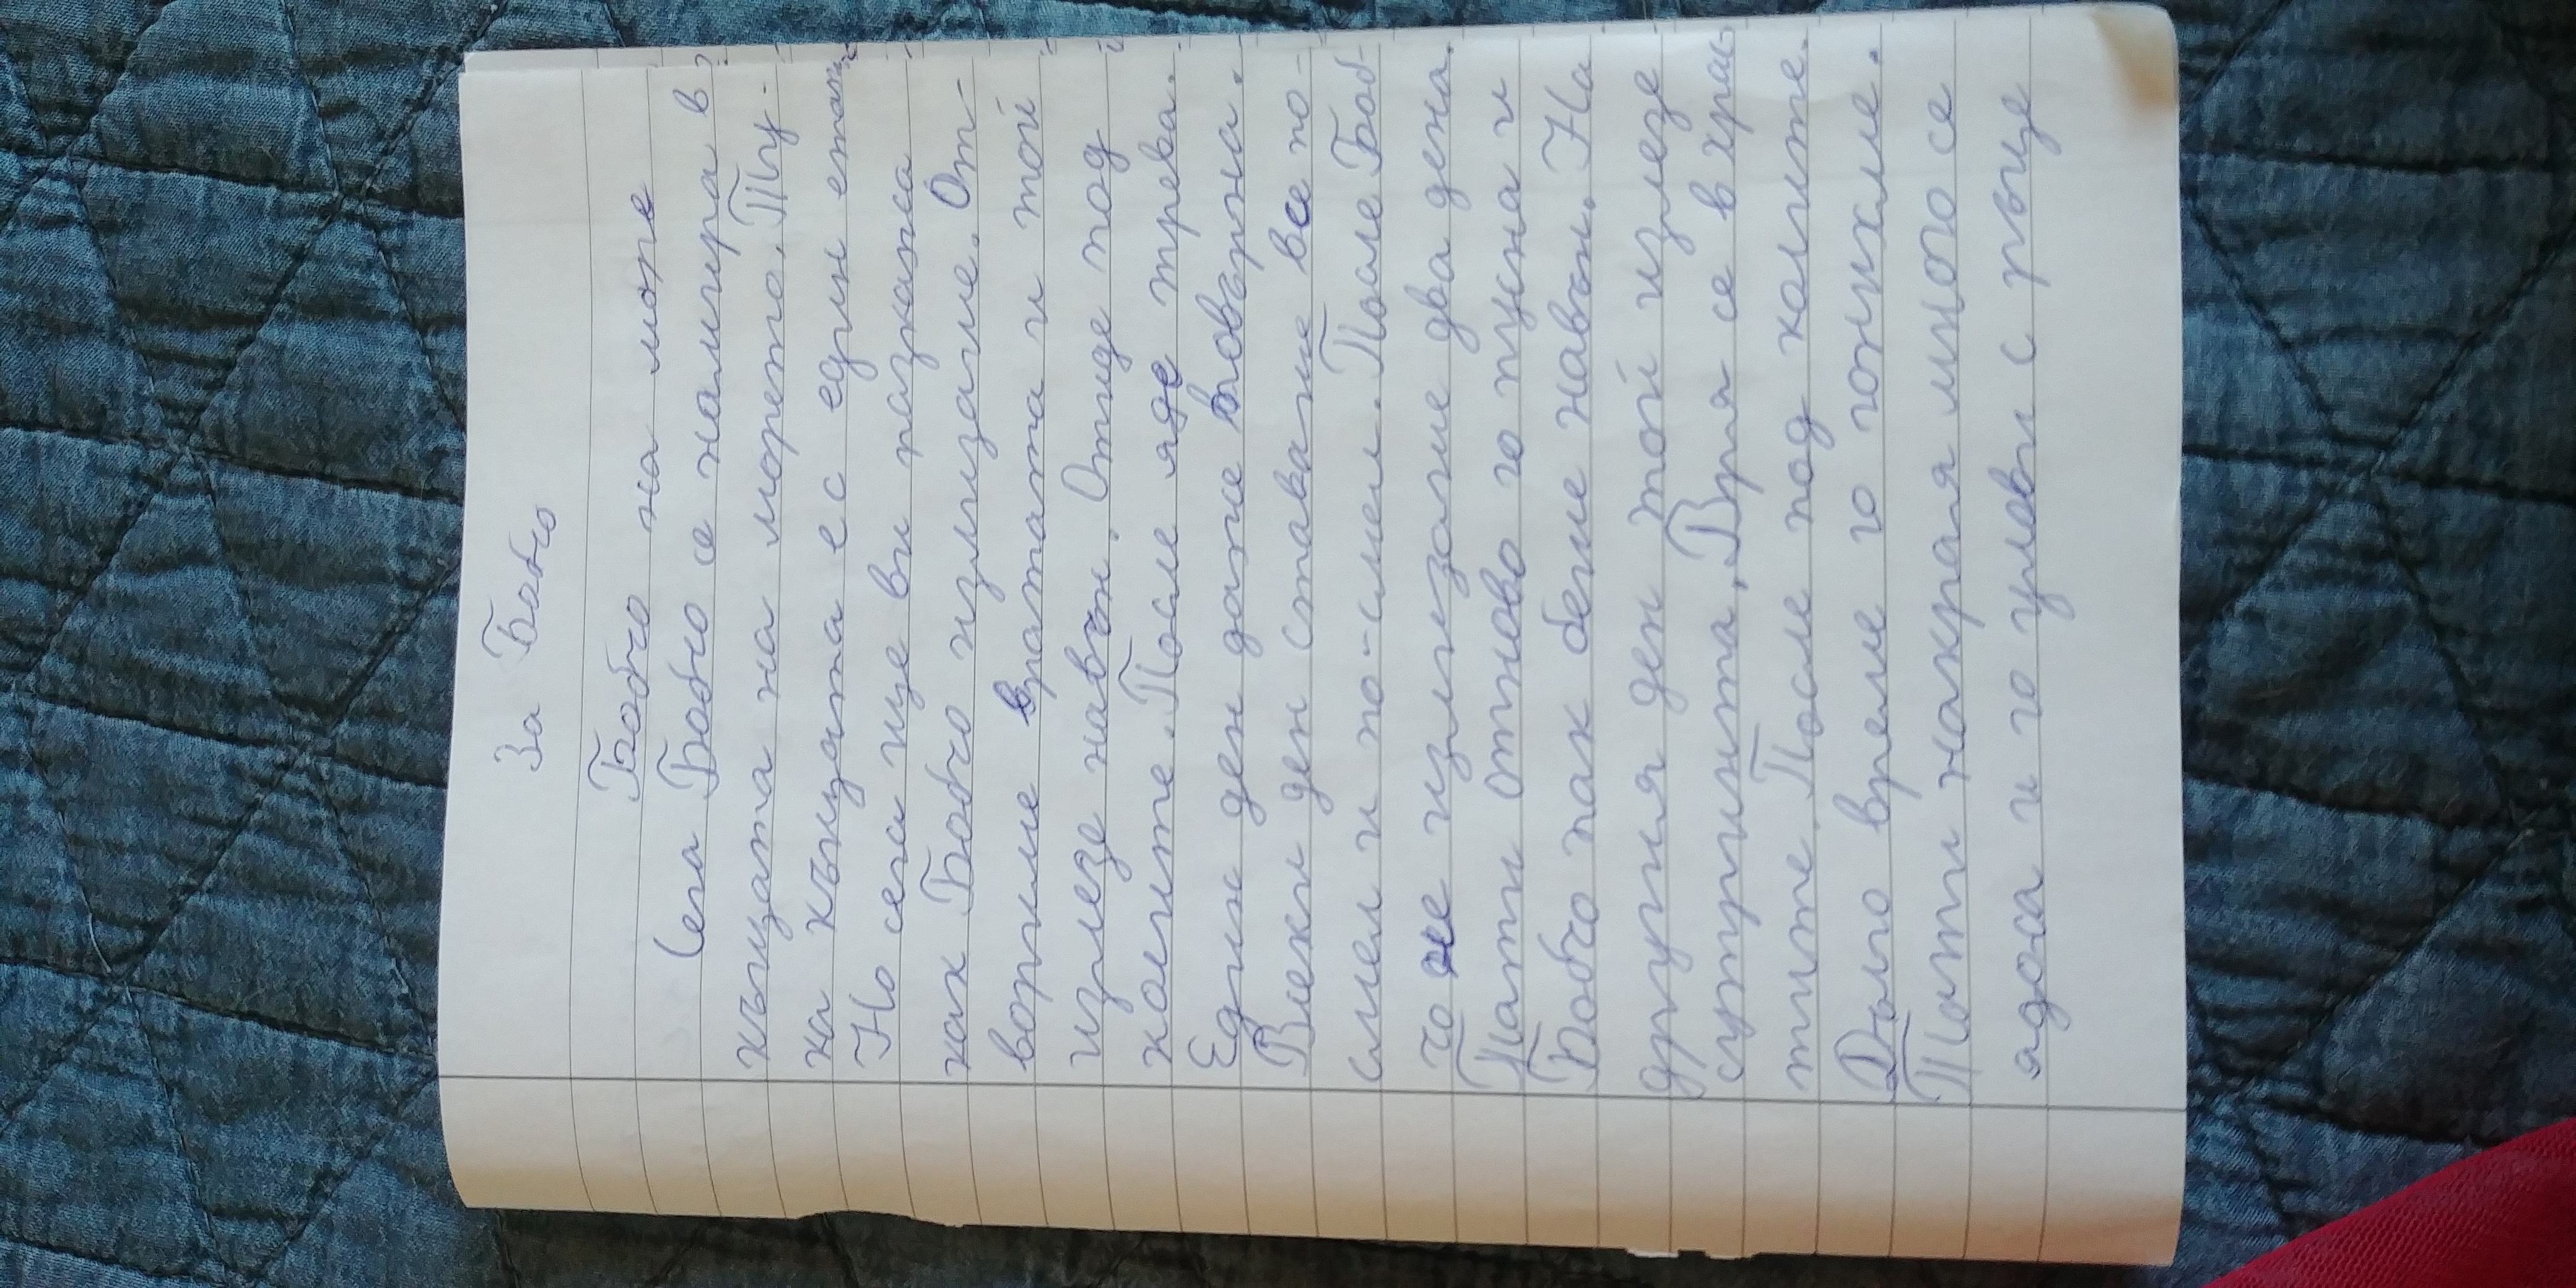 За Бобчо
Бобчо на море
Сега Бобчо се намира в
къщата на морето. Ту-
ка къщата е с един етаж.
Но сега ще ви разкажа
как Бобчо излизаше. От-
ворихме вратата и той
излезе навън. Отиде под
колите. После яде трева.
Един ден даже повърна.
Всеки ден ставаше все по-
смел и по-смел. После Боб-
чо не излизаше два дена.
Тати отново го пусна и
Бобчо пак беше навън. На
другия ден той излезе
сутринта. Вря се в храс-
тите. После под колите.
Дълго време го гонихме.
Тати накрая много се
ядоса и го улови с ръце